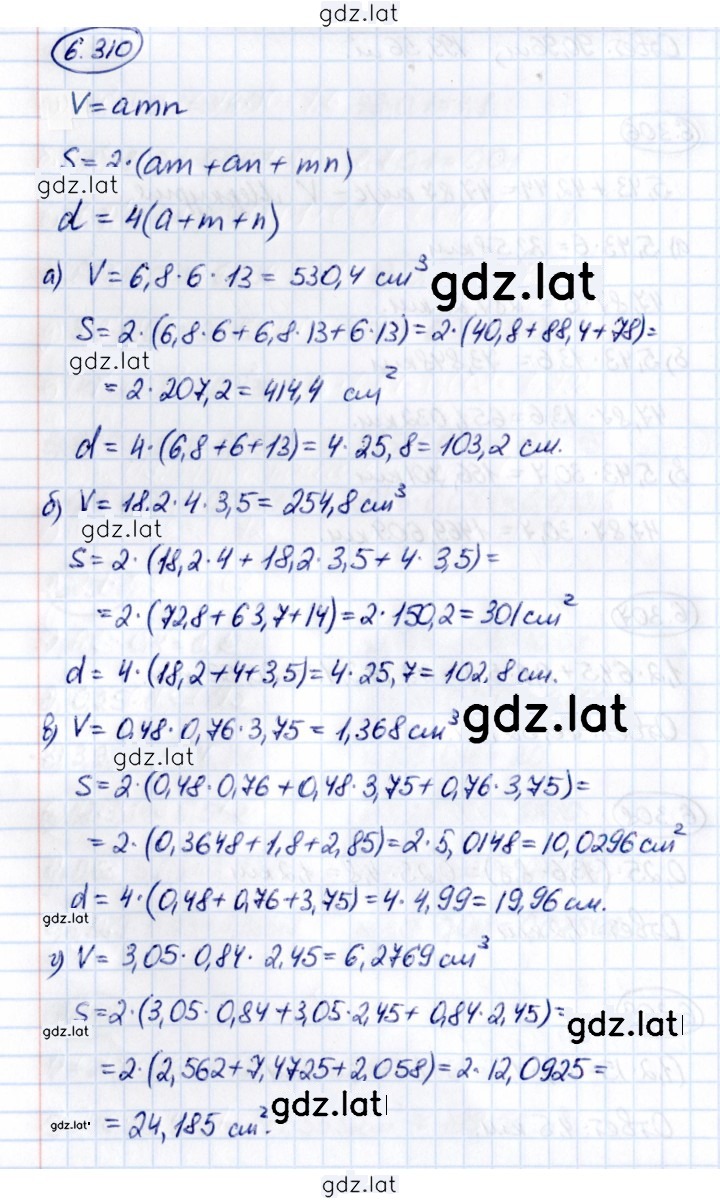 gdz.lat
6.310
V=amn
S=2·(am+an+mn)
gdz.lat
d=4(a+m+n)
а) V=6,8·6·13=530,4 см³
gdz.lat
S=2·(6,8·6+6,8·13+6·13)=2·(40,8+88,4+78)=
gdz.lat
=2·207,2=414,4 см²
d=4·(6,8+6+13)=4·25,8=103,2 см.
б) V=18.2·4·3,5=254,8 см³
gdz.lat
S=2·(18,2·4+18,2·3,5+4·3,5)=
=2·(72,8+63,7+14)=2·150,2=301 см²
d=4·(18,2+4+3,5)=4·25,7=102,8 см.
в) V=0,48·0,76·3,75=1,368 см³
gdz.lat
gdz.lat
S=2·(0,48·0,76+0,48·3,75+0,76·3,75)=
=2·(0,3648+1,8+2,85)=2·5,0148=10,0296 см²
d=4·(0,48+0,76+3,75)=4·4,99=19,96 см.
gdz.lat
г) V=3,05·0,84·2,45=6,2769 см³
S=2·(3,05·0,84+3,05·2,45+0,84·2,45)=
gdz.lat
gdz.lat
=2·(2,562+7,4725+2,058)=2·12,0925=
gdz.lat
=24,185 см².
gdz.lat
gdz.lat